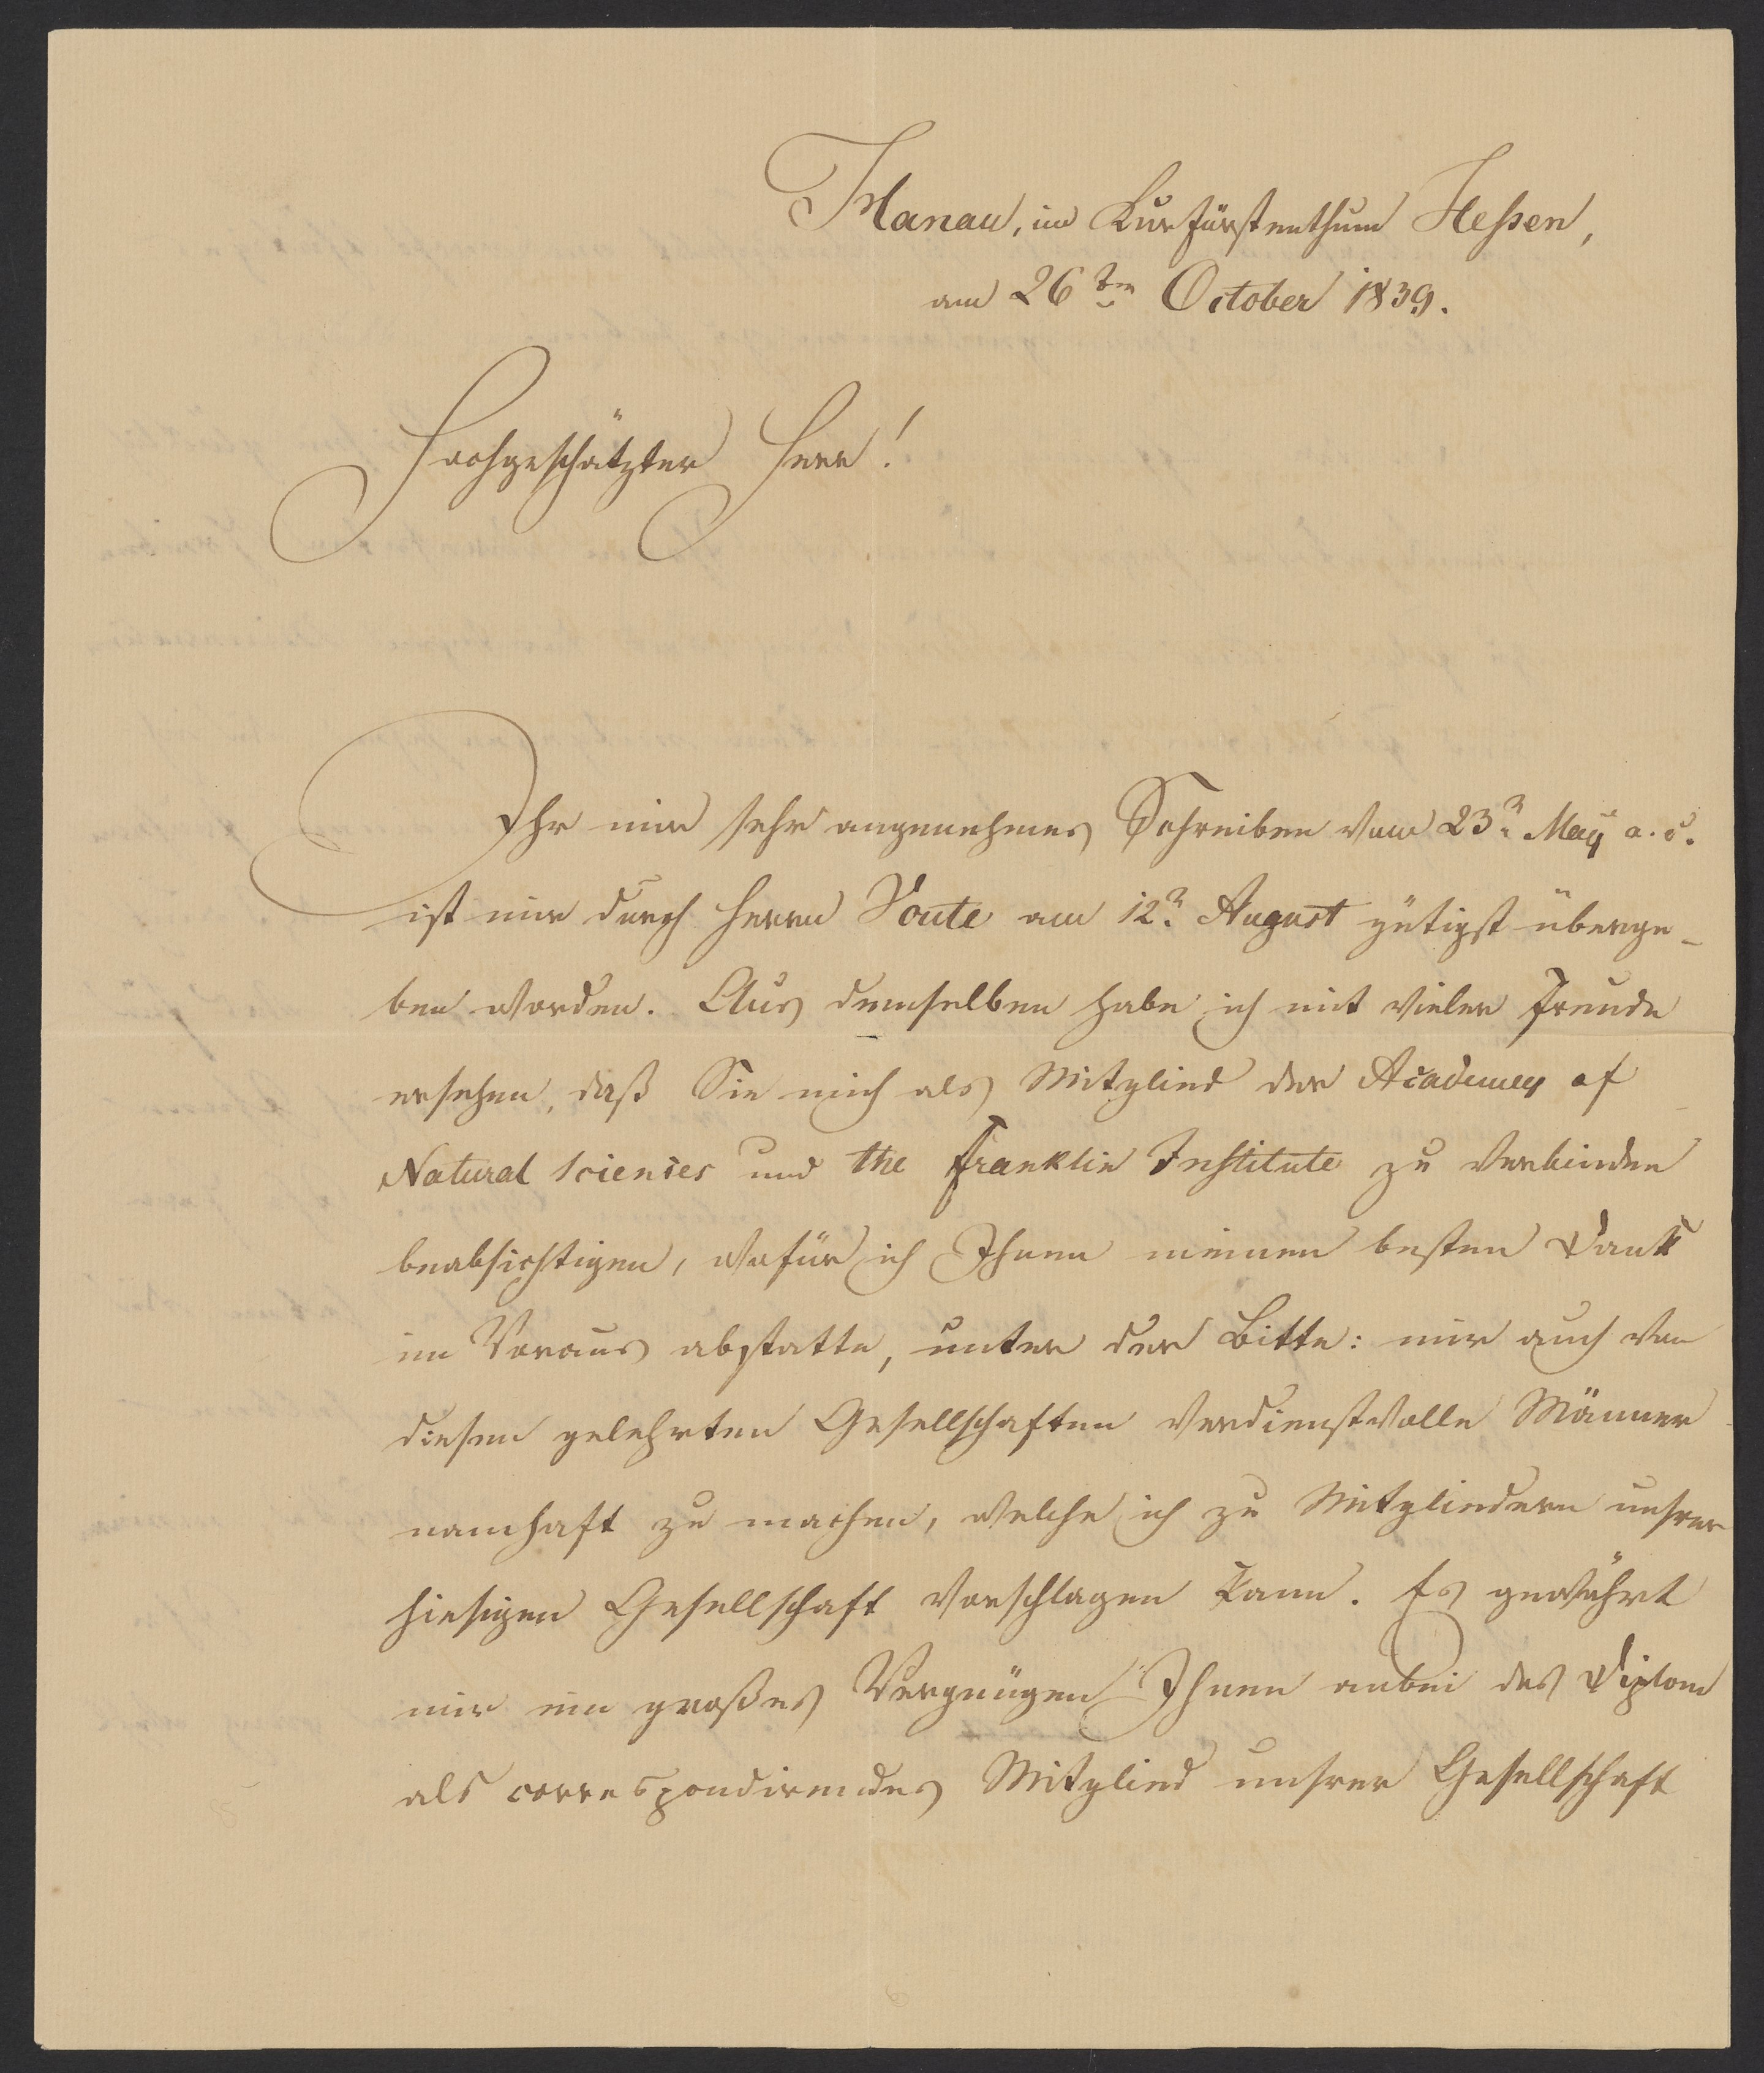 Hanau, im Kurfürstenthum Hessen,
am 26ten October 1839.
Hochgeschätzter Herr!
Ihr mir sehr angenehmes Schreiben vom 23n. May a. c.
ist mir durch Herrn Voute am 12n. August gütigst überge-
ben worden. Aus demselben habe ich mit vieler Freude
ersehen, daß Sie mich als Mitglied der Academey of
Natural Sciences und the Franklin Institute zu verbinden
beabsichtigen, wofür ich Ihnen meinen besten Dank
im Voraus abstatte, unter der Bitte: mir auch von
diesen gelehrten Gesellschaften verdienstvolle Männer
namhaft zu machen, welche ich zu Mitgliedern unsrer
hiesigen Gesellschaft vorschlagen kann. Es gewährt
mir ein großes Vergnügen Ihnen anbei das Diplom
als correspondirendes Mitglied unsrer Gesellschaft